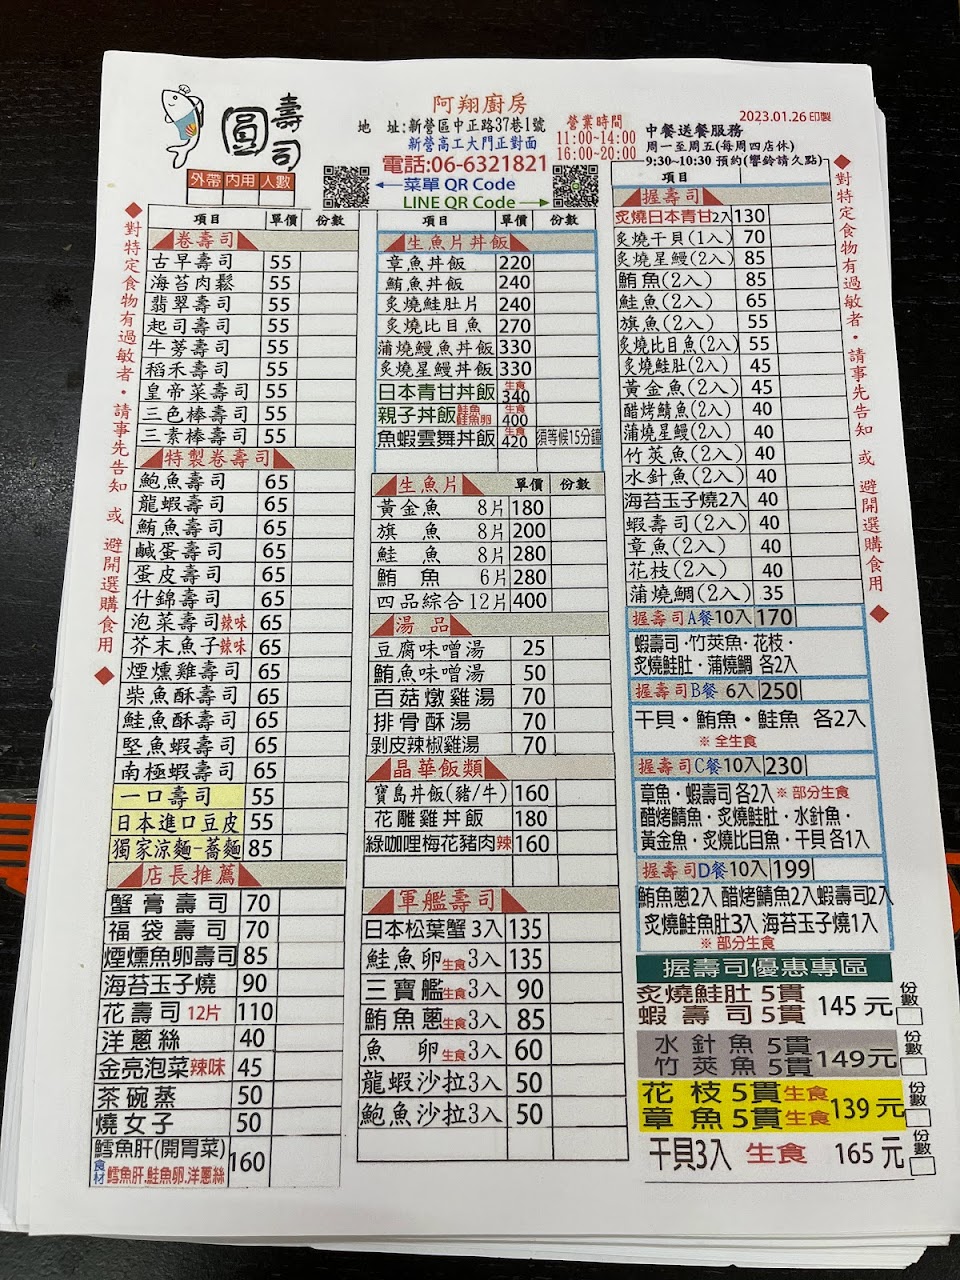 壽
圓
司
外帶 內用 人數
阿翔廚房
地 址:新營區中正路37巷1號
新營高工大門正對面
電話:06-6321821
←菜單 QR Code
LINE QR Code→
營業時間
11:00~14:00
16:00~20:00
2023.01.26印製
中餐送餐服務
周一至周五(每周四店休)
9:30~10:30 預約(響鈴請久點)
◆對特定食物有過敏者・請事先告知 或 避開選購食用◆
項目 單價 份數
卷壽司
古早壽司 55
海苔肉鬆 55
翡翠壽司 55
起司壽司 55
牛蒡壽司 55
稻禾壽司 55
皇帝菜壽司 55
三色棒壽司 55
三素棒壽司 55
特製卷壽司
鮑魚壽司 65
龍蝦壽司 65
鮪魚壽司 65
鹹蛋壽司 65
蛋皮壽司 65
什錦壽司 65
泡菜壽司辣味 65
芥末魚子辣味 65
煙燻雞壽司 65
柴魚酥壽司 65
鮭魚酥壽司 65
堅魚蝦壽司 65
南極蝦壽司 65
一口壽司 55
日本進口豆皮 55
獨家涼麵-蕎麵 85
店長推薦
蟹膏壽司 70
福袋壽司 70
煙燻魚卵壽司 85
海苔玉子燒 90
花壽司 12片 110
洋蔥絲 40
金亮泡菜辣味 45
茶碗蒸 50
燒女子 50
鱈魚肝(開胃菜) 160
食材 鱈魚肝.鮭魚卵.洋蔥絲
項目 單價 份數
生魚片丼飯
章魚丼飯 220
鮪魚丼飯 240
炙燒鮭肚片 240
炙燒比目魚 270
蒲燒鰻魚丼飯 330
炙燒星鰻丼飯 330
日本青甘丼飯 生食 340
親子丼飯 鮭魚 鮭魚卵 生食 400
魚蝦雲舞丼飯 生食 420 須等候15分鐘
生魚片 單價 份數
黃金魚 8片 180
旗 魚 8片 200
鮭 魚 8片 280
鮪 魚 6片 280
四品綜合12片 400
湯 品
豆腐味噌湯 25
鮪魚味噌湯 50
百菇燉雞湯 70
排骨酥湯 70
剝皮辣椒雞湯 70
晶華飯類
寶島丼飯(豬/牛) 160
花雕雞丼飯 180
綠咖哩梅花豬肉辣 160
軍艦壽司
日本松葉蟹 3入 135
鮭魚卵生食3入 135
三寶艦生食3入 90
鮪魚蔥生食3入 85
魚 卵生食3入 60
龍蝦沙拉3入 50
鮑魚沙拉3入 50
項目
握壽司
炙燒日本青甘2入 130
炙燒干貝(1入) 70
炙燒星鰻(2入) 85
鮪魚(2入) 85
鮭魚(2入) 65
旗魚(2入) 55
炙燒比目魚(2入) 55
炙燒鮭肚(2入) 45
黃金魚(2入) 45
醋烤鯖魚(2入) 40
蒲燒星鰻(2入) 40
竹莢魚(2入) 40
水針魚(2入) 40
海苔玉子燒2入 40
蝦壽司(2入) 40
章魚(2入) 40
花枝(2入) 40
蒲燒鯛(2入) 35
握壽司A餐10入 170
蝦壽司・竹莢魚・花枝・
炙燒鮭肚・蒲燒鯛 各2入
握壽司B餐 6入 250
干貝・鮪魚・鮭魚 各2入
※ 全生食
握壽司C餐10入 230
章魚・蝦壽司 各2入 ※ 部分生食
醋烤鯖魚・炙燒鮭肚・水針魚・
黃金魚・炙燒比目魚・干貝 各1入
握壽司D餐10入 199
鮪魚蔥2入 醋烤鯖魚2入 蝦壽司2入
炙燒鮭魚肚3入 海苔玉子燒1入
※ 部分生食
握壽司優惠專區
炙燒鮭肚 5貫
蝦 壽 司 5貫 145 元 份數
水 針 魚 5貫
竹 莢 魚 5貫 149元 份數
花 枝 5貫 生食
章 魚 5貫 生食 139 元 份數
干貝3入 生食 165 元 份數
◆對特定食物有過敏者・請事先告知 或 避開選購食用◆